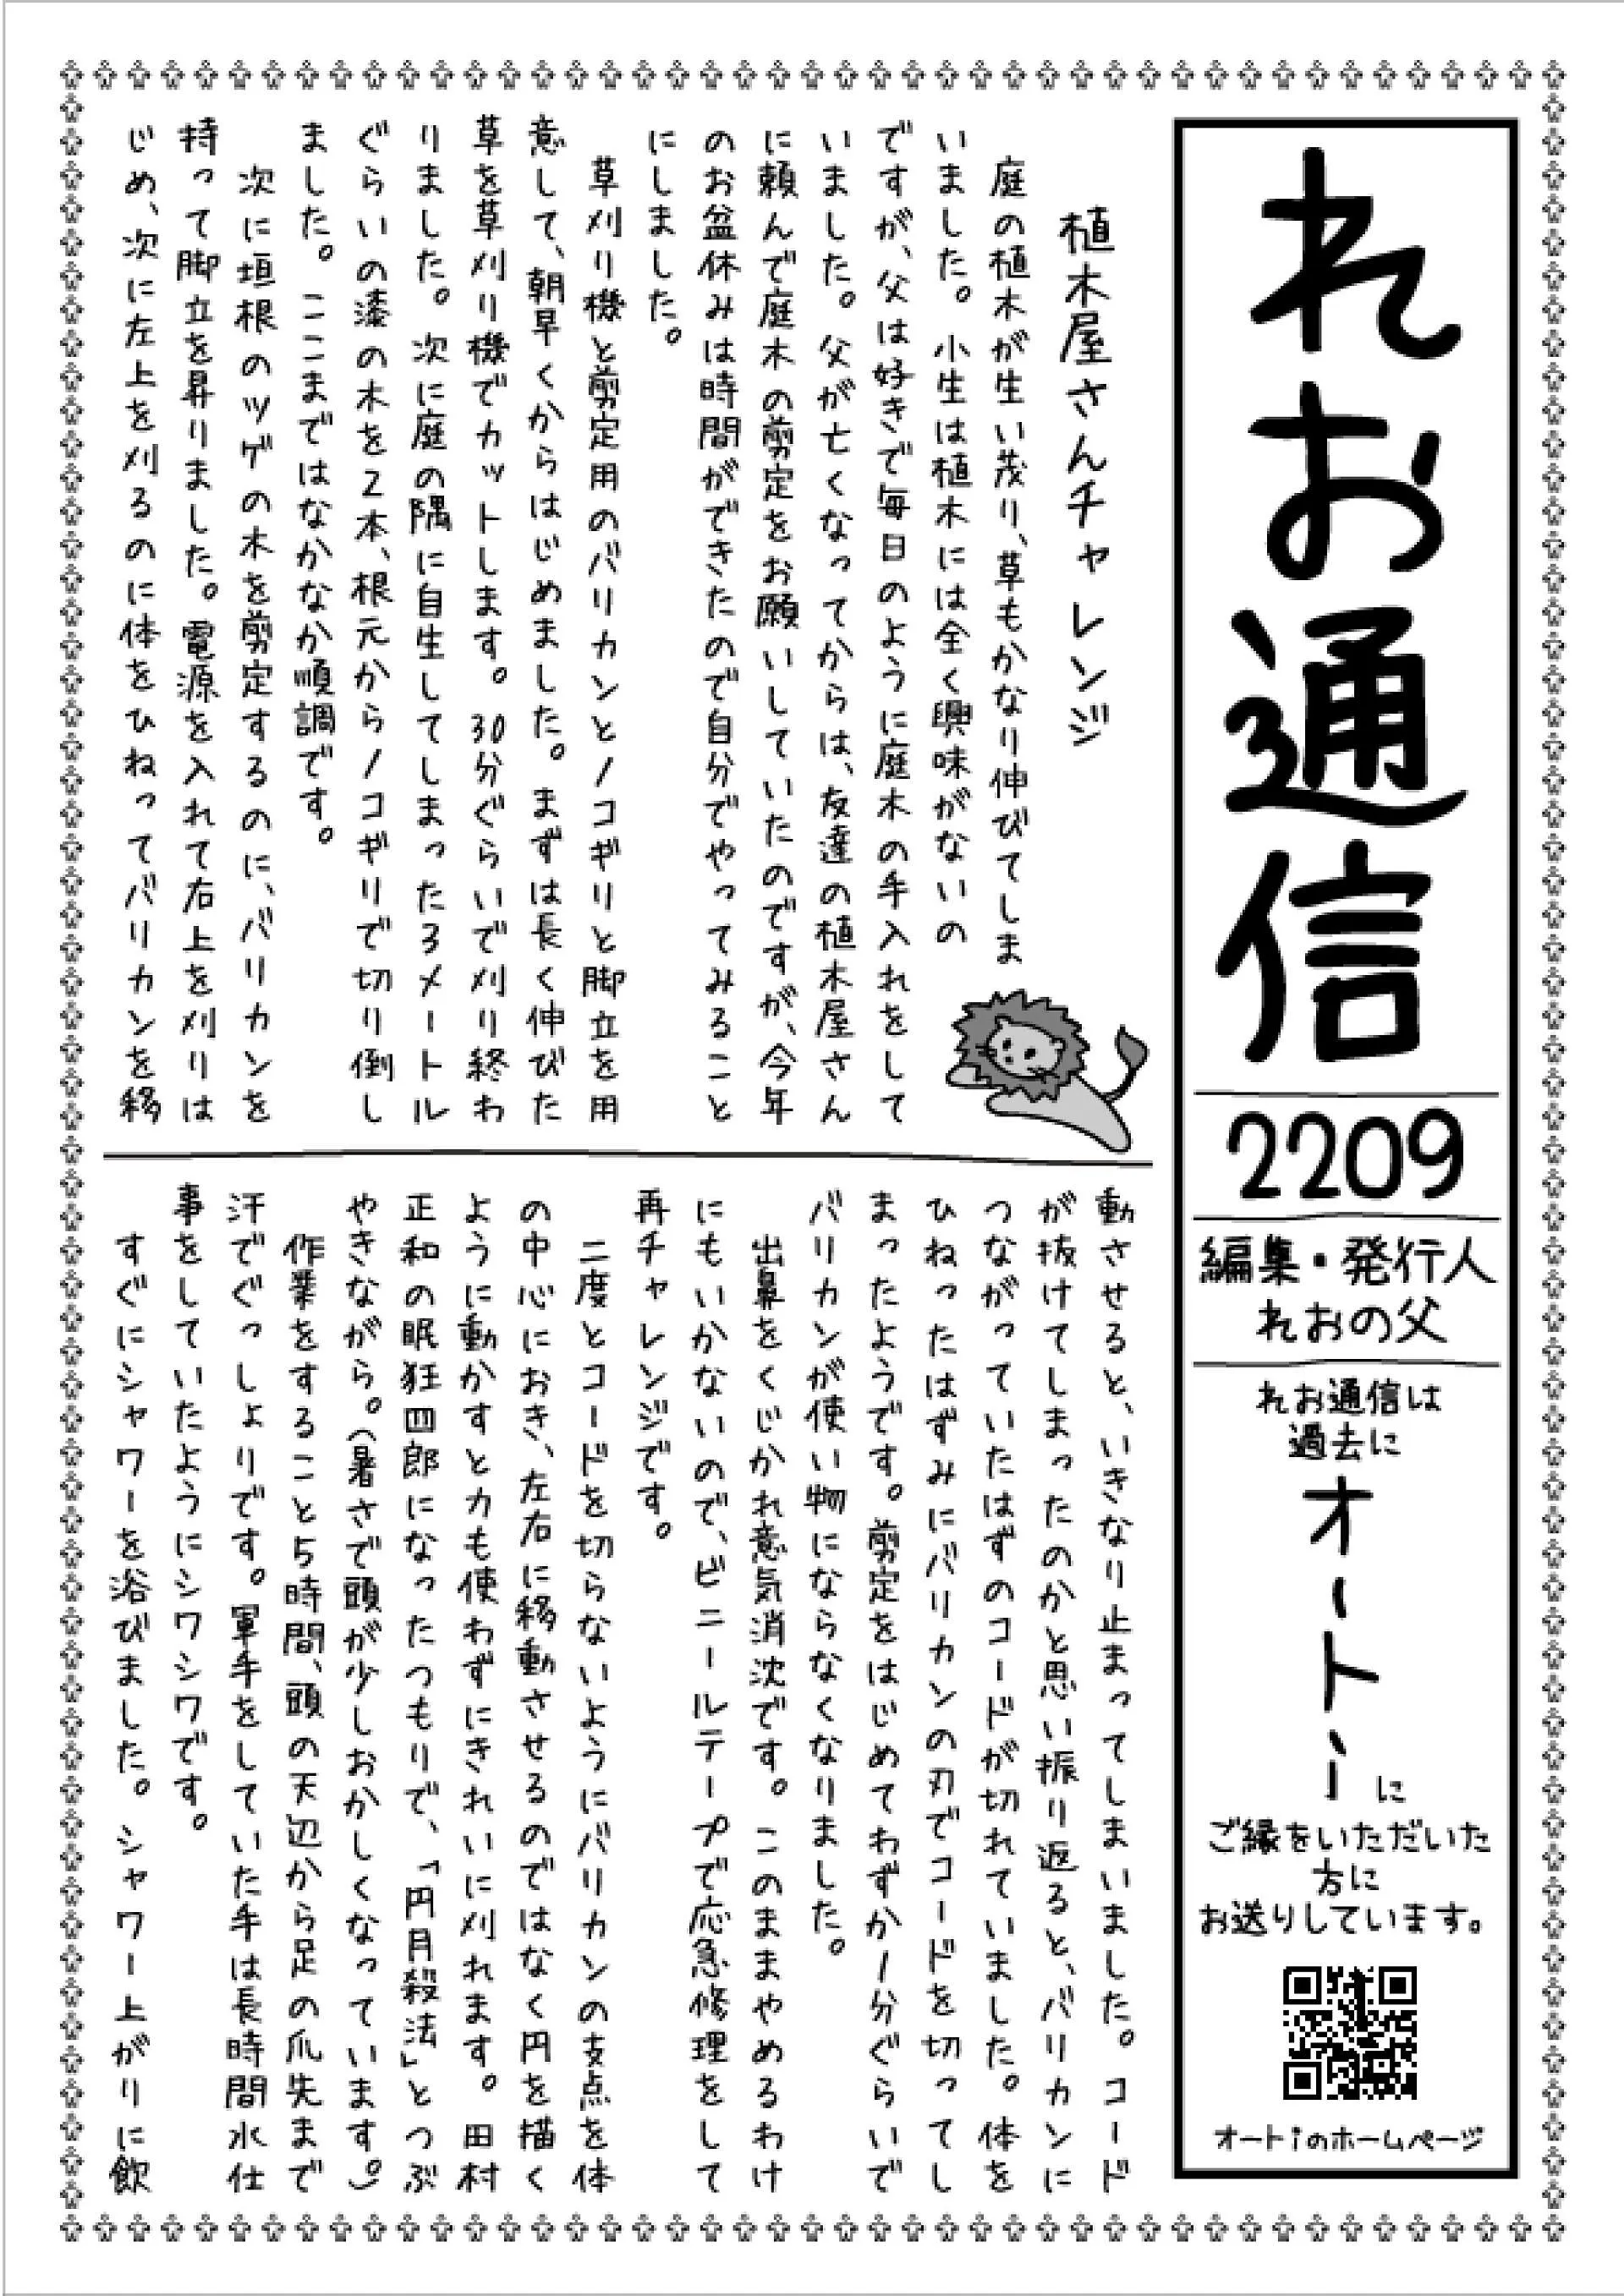 れお通信
2209
編集・発行人
れおの父
れお通信は
過去に
オートｉに
ご縁をいただいた
方に
お送りしています。
オートｉのホームページ
植木屋さんチャレンジ
庭の植木が生い茂り、草もかなり伸びてしま
いました。小生は植木には全く興味がないの
ですが、父は好きで毎日のように庭木の手入れをして
いました。父が亡くなってからは、友達の植木屋さん
に頼んで庭木の剪定をお願いしていたのですが、今年
のお盆休みは時間ができたので自分でやってみること
にしました。
草刈り機と剪定用のバリカンとノコギリと脚立を用
意して、朝早くからはじめました。まずは長く伸びた
草を草刈り機でカットします。30分ぐらいで刈り終わ
りました。次に庭の隅に自生してしまった3メートル
ぐらいの漆の木を2本、根元からノコギリで切り倒し
ました。ここまではなかなか順調です。
次に垣根のツゲの木を剪定するのに、バリカンを
持って脚立を昇りました。電源を入れて右上を刈りは
じめ、次に左上を刈るのに体をひねってバリカンを移
動させると、いきなり止まってしまいました。コード
が抜けてしまったのかと思い振り返ると、バリカンに
つながっていたはずのコードが切れていました。体を
ひねったはずみにバリカンの刃でコードを切ってし
まったようです。剪定をはじめてわずか1分ぐらいで
バリカンが使い物にならなくなりました。
出鼻をくじかれ意気消沈です。このままやめるわけ
にもいかないので、ビニールテープで応急修理をして
再チャレンジです。
二度とコードを切らないようにバリカンの支点を体
の中心におき、左右に移動させるのではなく円を描く
ように動かすと力も使わずにきれいに刈れます。田村
正和の眠狂四郎になったつもりで、「円月殺法」とつぶ
やきながら。（暑さで頭が少しおかしくなっています。）
作業をすること5時間、頭の天辺から足の爪先まで
汗でぐっしょりです。軍手をしていた手は長時間水仕
事をしていたようにシワシワです。
すぐにシャワーを浴びました。シャワー上がりに飲